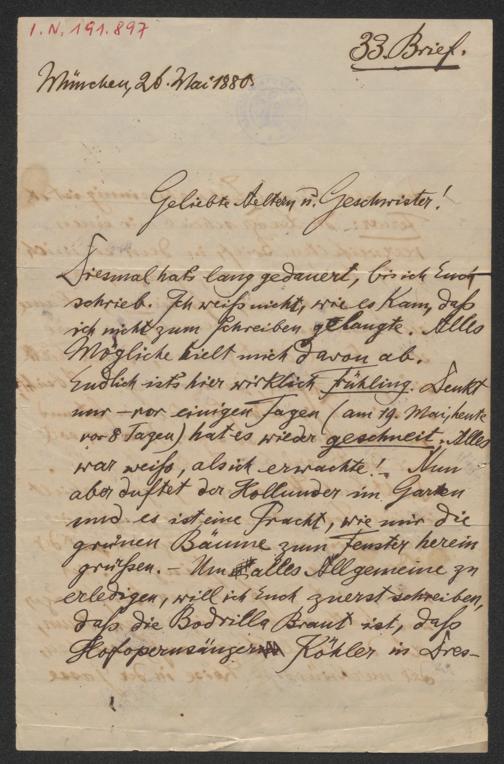 I.N. 191.897
33. Brief.
München, 26. Mai 1880.
Geliebte Aeltern u. Geschwister!
Diesmal hat's lang gedauert, bis ich Euch
schrieb. Ich weiß nicht, wie es kam, daß
ich nicht zum Schreiben gelangte. Alles
Mögliche hielt mich davon ab.
Endlich ist's hier wirklich Frühling. Denkt
nur – vor einigen Tagen (am 19. Mai, heute
vor 8 Tagen) hat es wieder geschneit. Alles
war weiß, als ich erwachte! – Nun
aber duftet der Hollunder im Garten
und es ist eine Pracht, wie mir die
grünen Bäume zum Fenster herein
grüßen. – Um alles Allgemeine zu
erledigen, will ich Euch zuerst schreiben,
daß die Bodrilla Braut ist, daß
Hofopernsänger Köhler in Dres-